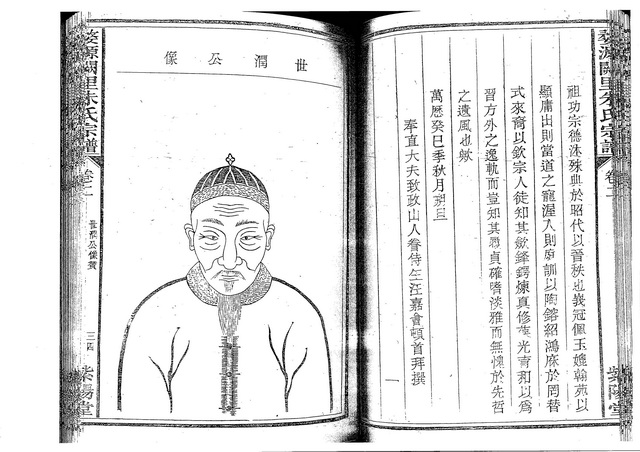 婺源闕里朱氏宗譜
卷二
紫陽堂
祖功宗德洙殊典於昭代以晉秩也峩冠佩玉翰苑以
顯庸出則當道之寵渥入則訓以陶鎔紹鴻庥於罔替
式來裔以欽宗人徒知其斂鋒鍔煉真修葆光育和以為
習方外之逸軌而豈知其貞確嗜淡雅而無愧於先哲
之遺風也歟
萬曆癸巳季秋月朔旦
奉直大夫致政山人眷侍生汪嘉會頓首拜撰
一
世潤公像
婺源闕里朱氏宗譜
卷二
世潤公像贊
紫陽堂